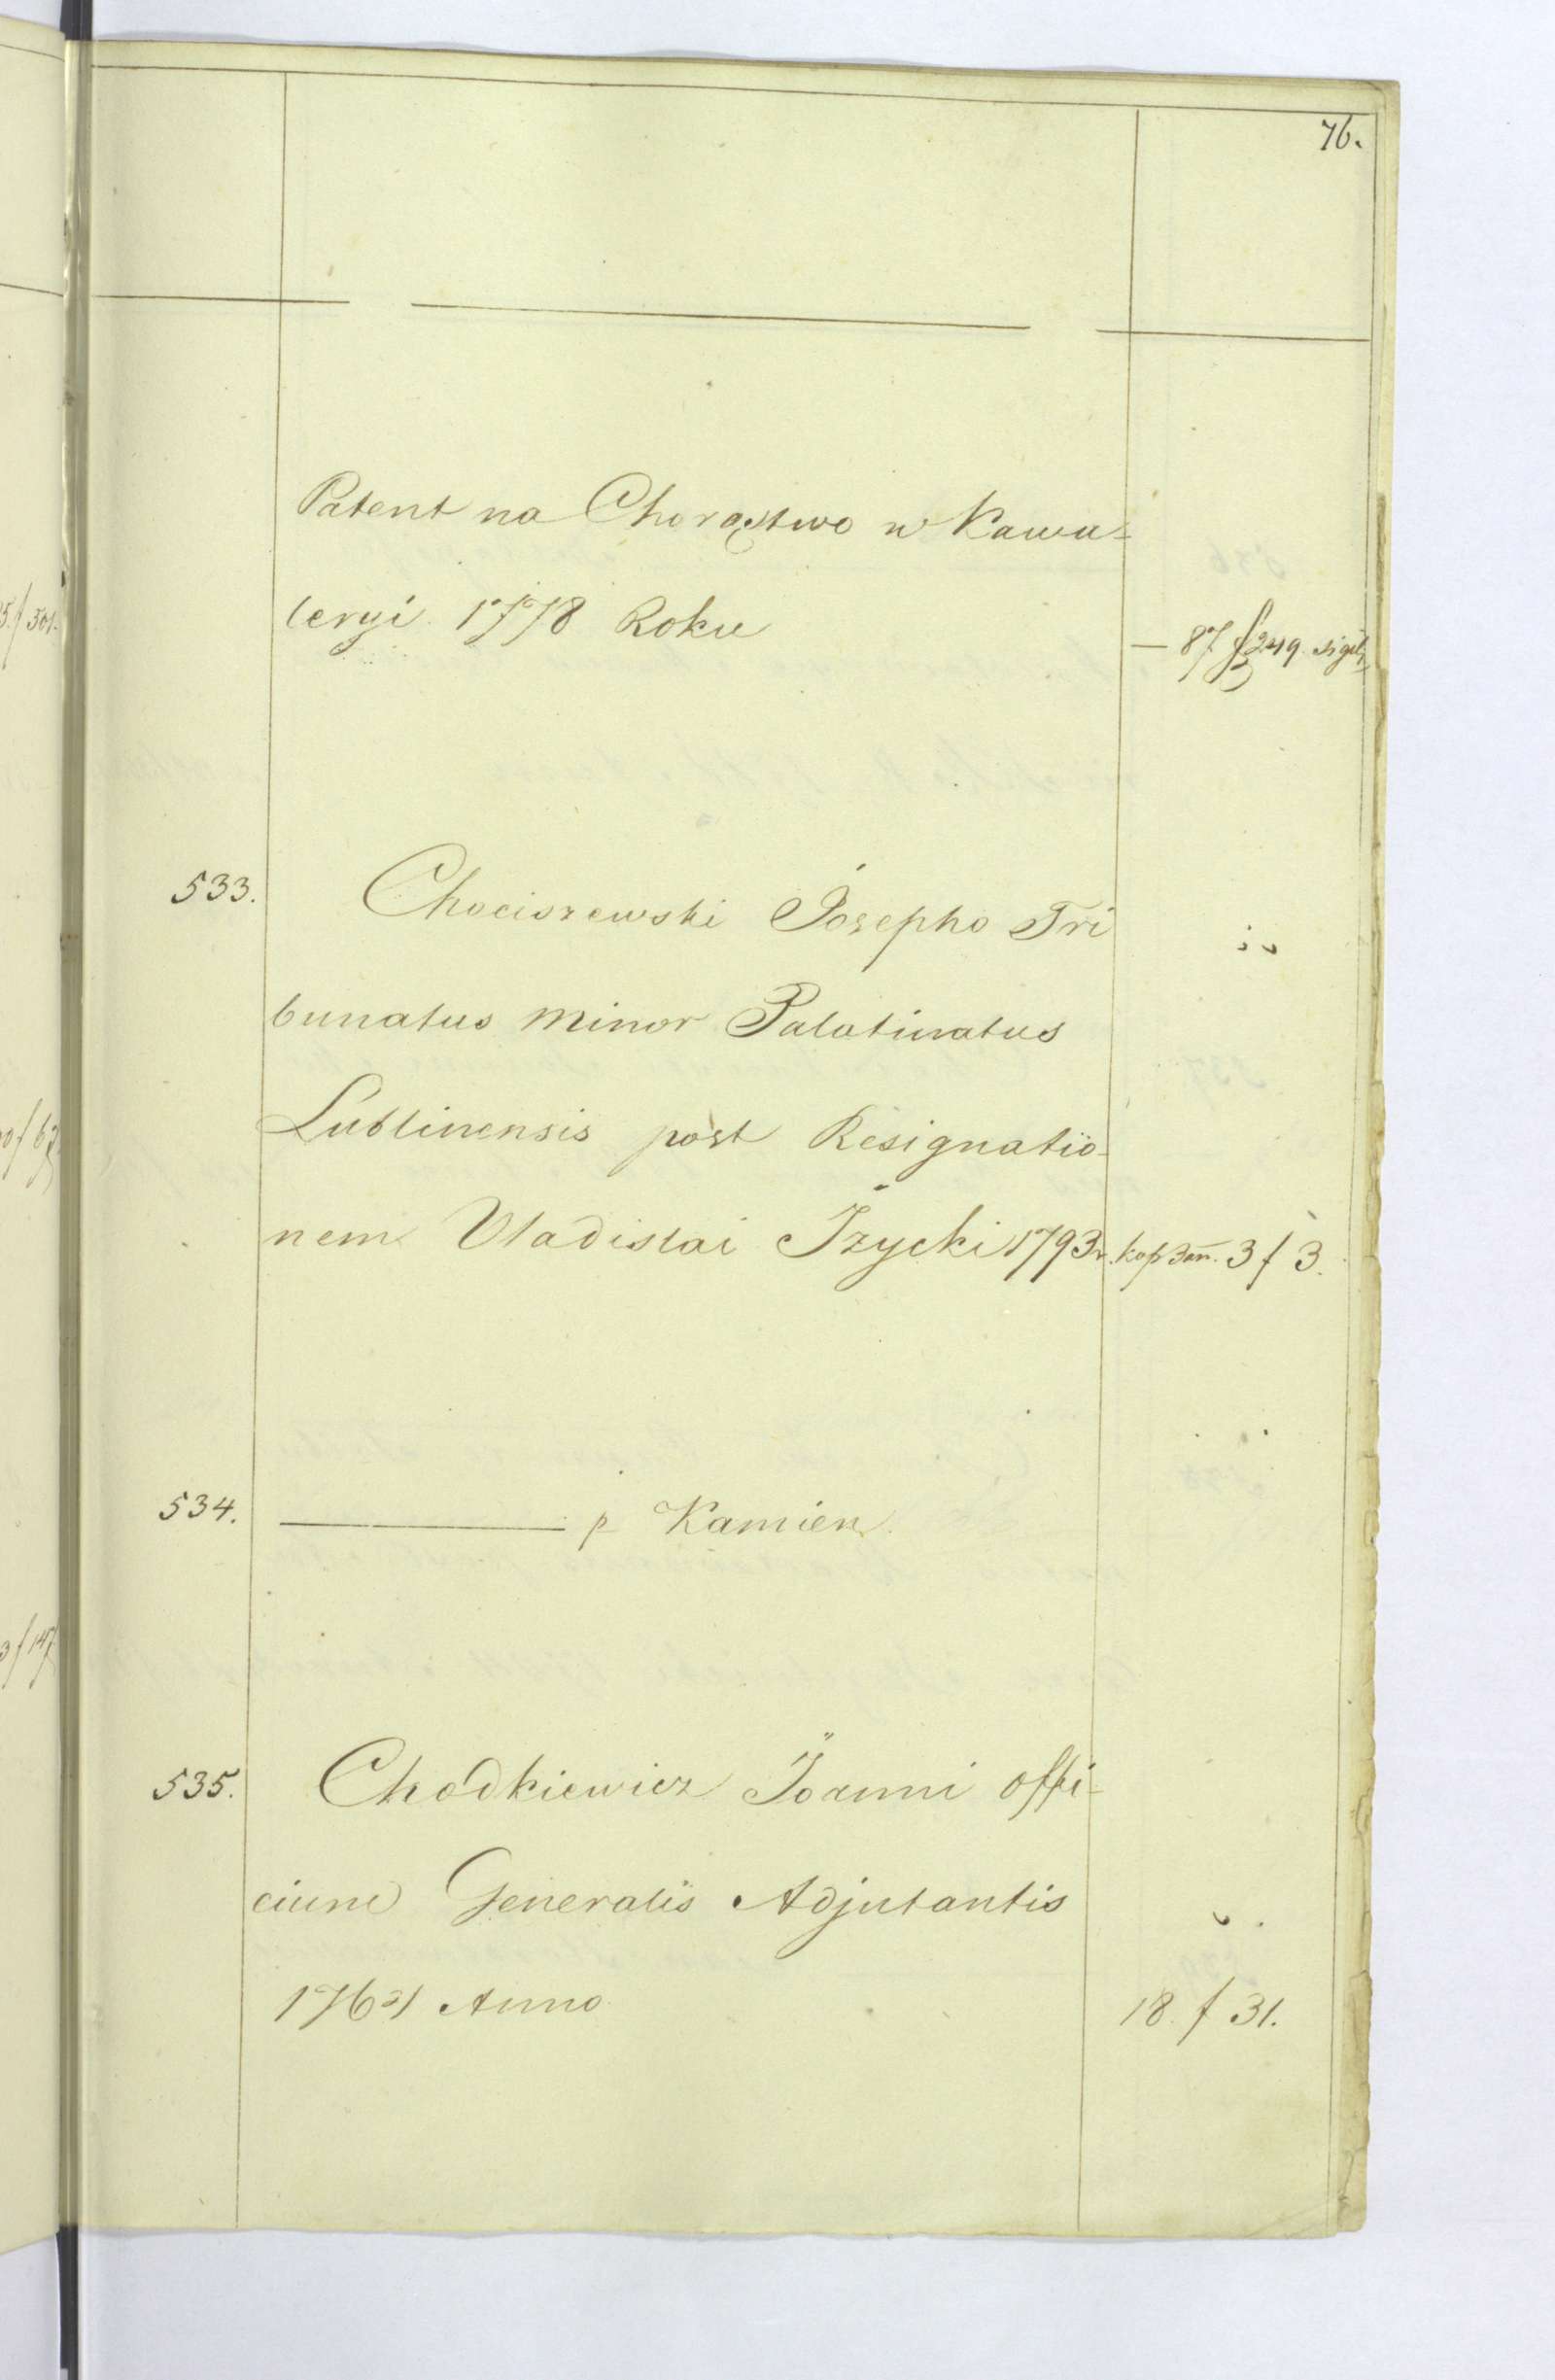 76.
Patent na Chorąstwo w Kawa=
leryi 1778 Roku
— 87 f 249 sigil.
533. Chociszewski Josepho Tri
bunatus minor Palatinatus
Lublinensis post Resignatio-
nem Vladislai Izycki 1793 r. 3 f 3.
534. ——— p Kamien
535. Chodkiewicz Joanni offi-
cium Generalis Adjutantis
Anno 18 f 31.